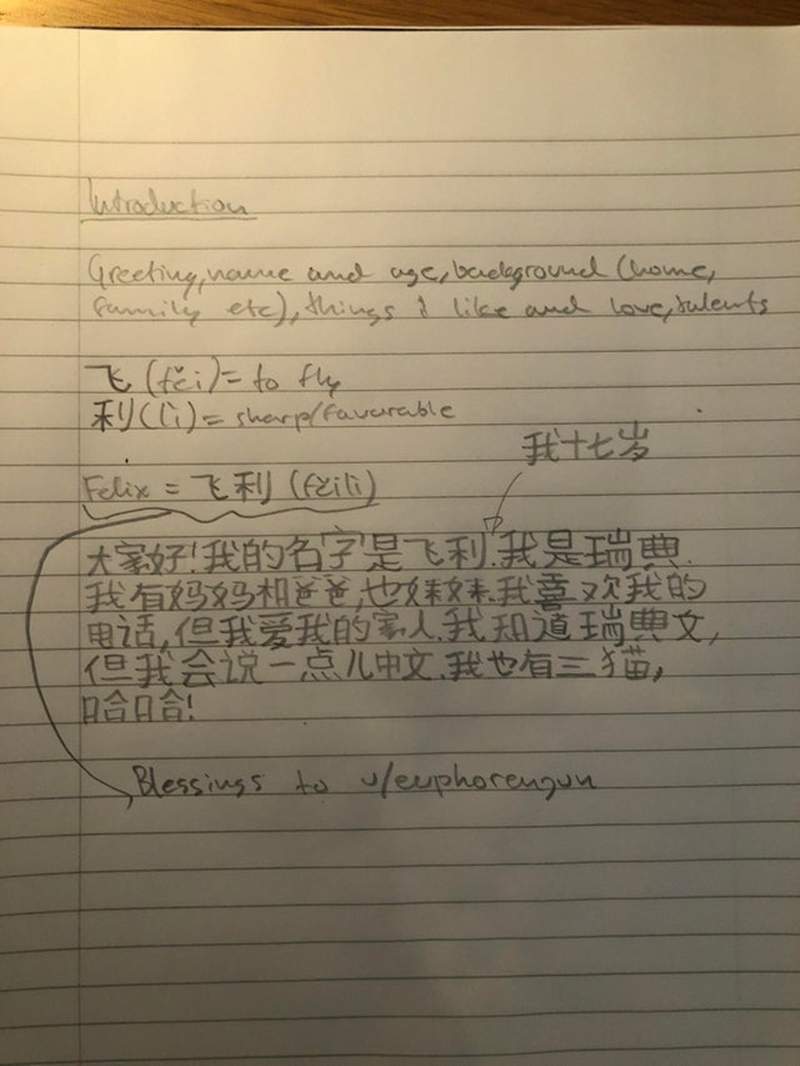 Introduction
Greeting, name and age, background (home,
family etc), things I like and love, talents
飞 (fěi) = to fly
利 (lì) = sharp/favorable
我十七岁
Felix = 飞利 (fěilì)
大家好!我的名字是飞利.我是瑞典.
我有妈妈和爸爸,也妹妹.我喜欢我的
电话,但我爱我的家人.我知道瑞典文,
但我会说一点儿中文.我也有三猫,
哈哈!
Blessings to u/euphorengun